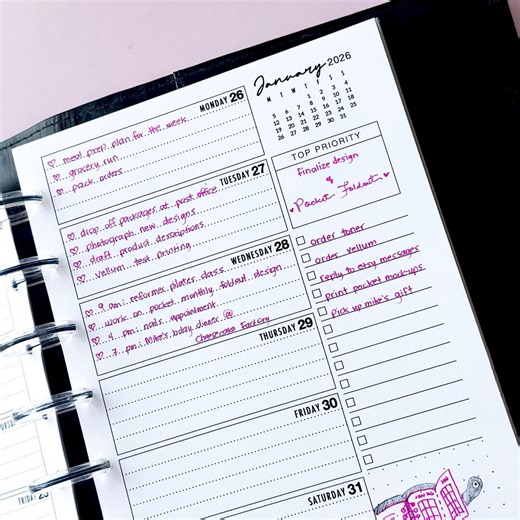 January 2026
M T W T F S S
1 2 3 4
5 6 7 8 9 10 11
12 13 14 15 16 17 18
19 20 21 22 23 24 25
26 27 28 29 30 31
MONDAY 26
meal prep plan for the week
grocery run
pack orders
TUESDAY 27
drop off packages at post office
photograph new designs
draft product descriptions
vellum test printing
WEDNESDAY 28
9 am: reformer pilates class
work on pocket monthly foldout design
4 pm: nails appointment
7 pm: Mike's bday dinner @
Cheesecake Factory
THURSDAY 29
FRIDAY 30
SATURDAY 31
TOP PRIORITY
Finalize design
&
Pocket Foldout
order toner
order vellum
reply to etsy messages
print pocket mockups
Pick up mike's gift
FRIDAY